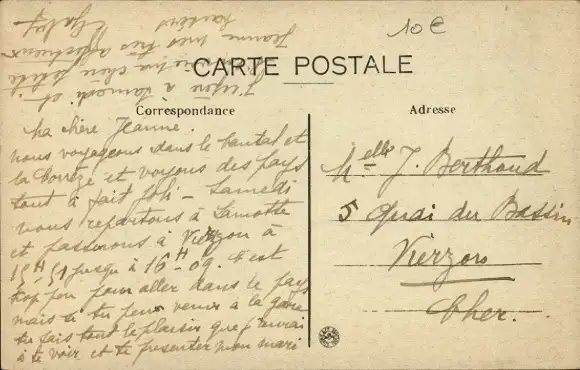 10€
CARTE POSTALE
Correspondance
Adresse
Ma chère Jeanne.
nous voyageons dans le Cantal et
la Corrèze et voyons des pays
tout à fait joli – Samedi
nous repartons à Lamotte
et passerons à Vierzon à
15H 51 jusqu'à 16H 09. C'est
trop peu pour aller dans le pays
mais si tu peux venir à la gare
tu sais tout le plaisir que j'aurai
à te voir, et te présenter mon mari
J'espère à Samedi et
ma chère petite
Jeanne mes très affectueux
baisers
Melle J. Berthoud
5 Quai du Bassin
Vierzon
Cher.